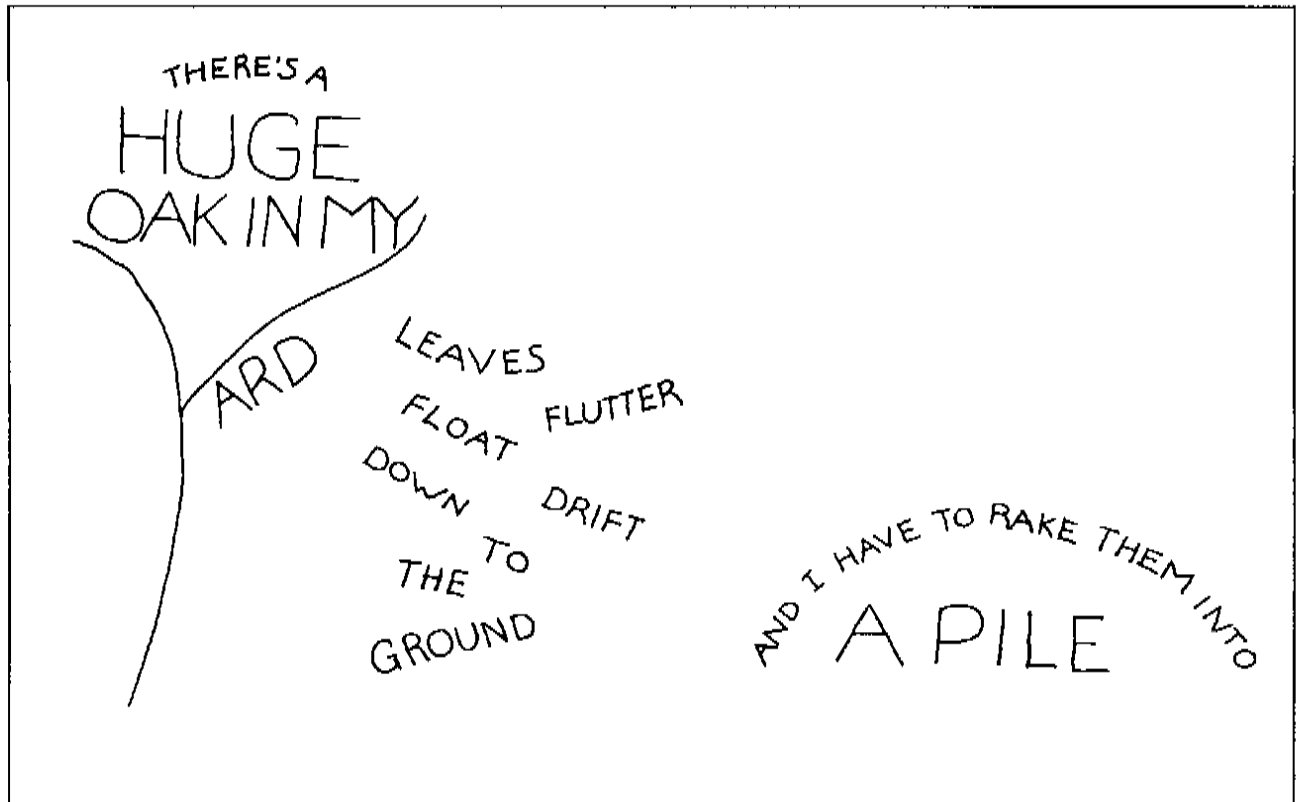 THERE'S A
HUGE
OAK IN MY
YARD
LEAVES
FLOAT FLUTTER
DOWN DRIFT
TO
THE
GROUND
AND I HAVE TO RAKE THEM INTO
A PILE